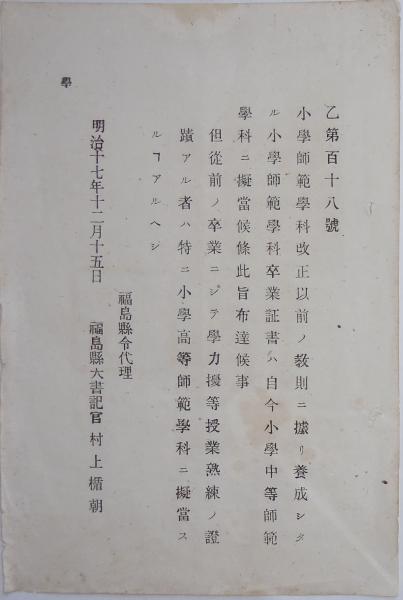 乙第百十八號
小學師範學科改正以前ノ敎則ニ據リ養成シタ
ル小學師範學科卒業証書ハ自今小學中等師範
學科ニ擬當候條此旨布達候事
但從前ノ卒業ニシテ學力擾等授業熟練ノ證
蹟アル者ハ特ニ小學高等師範學科ニ擬當ス
ルヿアルヘシ
福島縣令代理
明治十七年十二月十五日 福島縣大書記官 村上楯朝
學